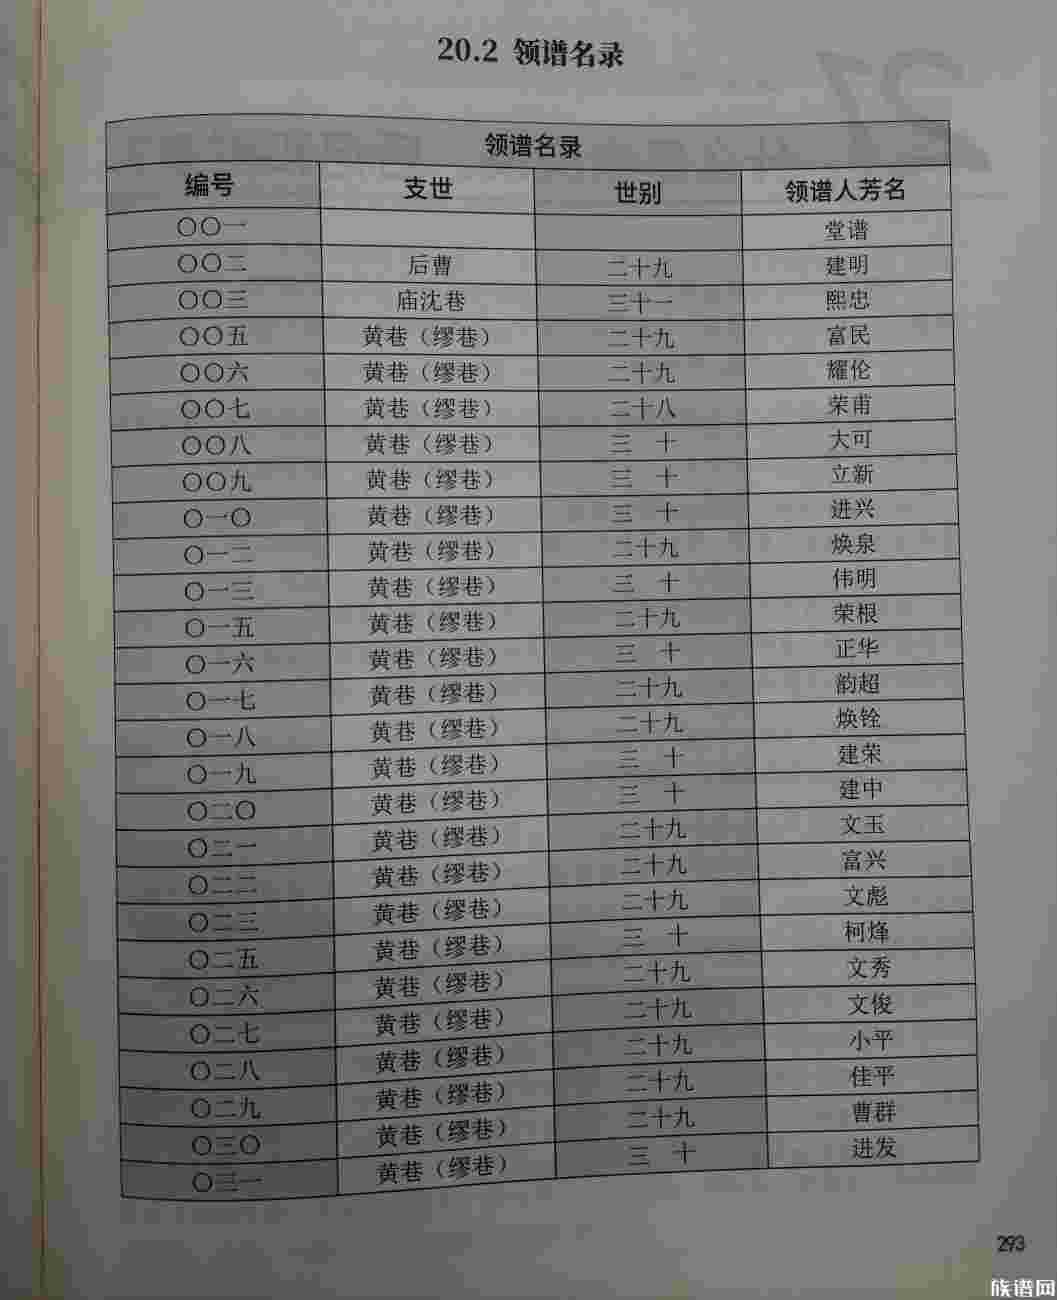 20.2 领谱名录
领谱名录
编号 支世 世别 领谱人芳名
〇〇一 堂谱
〇〇二 后曹 二十九 建明
〇〇三 庙沈巷 三十一 熙忠
〇〇五 黄巷（缪巷） 二十九 富民
〇〇六 黄巷（缪巷） 二十九 耀伦
〇〇七 黄巷（缪巷） 二十八 荣甫
〇〇八 黄巷（缪巷） 三 十 大可
〇〇九 黄巷（缪巷） 三 十 立新
〇一〇 黄巷（缪巷） 三 十 进兴
〇一二 黄巷（缪巷） 二十九 焕泉
〇一三 黄巷（缪巷） 三 十 伟明
〇一五 黄巷（缪巷） 二十九 荣根
〇一六 黄巷（缪巷） 三 十 正华
〇一七 黄巷（缪巷） 二十九 韵超
〇一八 黄巷（缪巷） 二十九 焕铨
〇一九 黄巷（缪巷） 三 十 建荣
〇二〇 黄巷（缪巷） 三 十 建中
〇二一 黄巷（缪巷） 二十九 文玉
〇二二 黄巷（缪巷） 二十九 富兴
〇二三 黄巷（缪巷） 二十九 文彪
〇二五 黄巷（缪巷） 三 十 柯烽
〇二六 黄巷（缪巷） 二十九 文秀
〇二七 黄巷（缪巷） 二十九 文俊
〇二八 黄巷（缪巷） 二十九 小平
〇二九 黄巷（缪巷） 二十九 佳平
〇三〇 黄巷（缪巷） 二十九 曹群
〇三一 黄巷（缪巷） 三 十 进发
293
族谱网